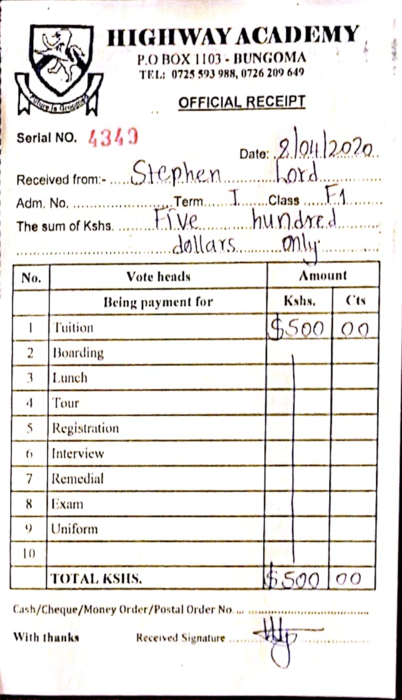 HIGHWAY ACADEMY
P.O BOX 1103 - BUNGOMA
TEL: 0725 593 988, 0726 209 649
OFFICIAL RECEIPT
Serial NO. 4349
Date: 2/04/2020
Received from:- Stephen Lord
Adm. No. Term I Class F1
The sum of Kshs. Five hundred
dollars only
No. Vote heads Amount
Being payment for Kshs. Cts
1 Tuition $500 00
2 Boarding
3 Lunch
4 Tour
5 Registration
6 Interview
7 Remedial
8 Exam
9 Uniform
10
TOTAL KSHS. $500 00
Cash/Cheque/Money Order/Postal Order No
With thanks Received Signature